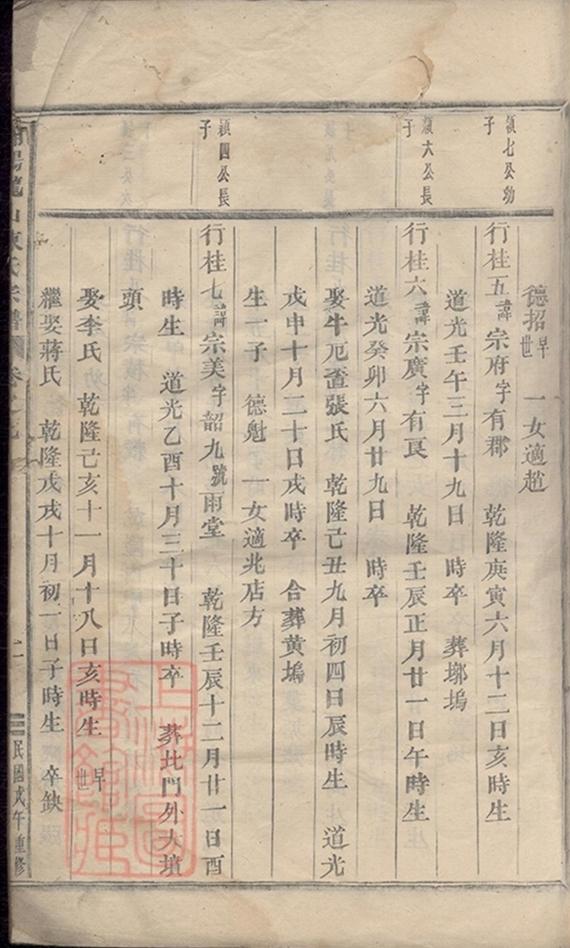 德招早世 一女適趙
穎七公幼子
行桂五諱宗府字有郡 乾隆庚寅六月十二日亥時生
道光壬午三月十九日 時卒 葬塚塢
穎六公長子
行桂六諱宗廣字有良 乾隆壬辰正月廿一日午時生
道光癸卯六月廿九日 時卒
娶牛厄𡒄張氏 乾隆己丑九月初四日辰時生 道光
戊申十月二十日戌時卒 合葬黃塢
生一子 德魁 一女適北店方
穎四公長子
行桂七諱宗美字韶九號雨堂 乾隆壬辰十二月廿一日酉
時生 道光乙酉十月三十日子時卒 葬北門外大墳
頭
娶李氏 乾隆己亥十一月十八日亥時生 早世
繼娶蔣氏 乾隆戊戌十月初二日子時生 卒缺
龍山陳氏宗譜 卷之
民國戊午重修
上海圖書館藏